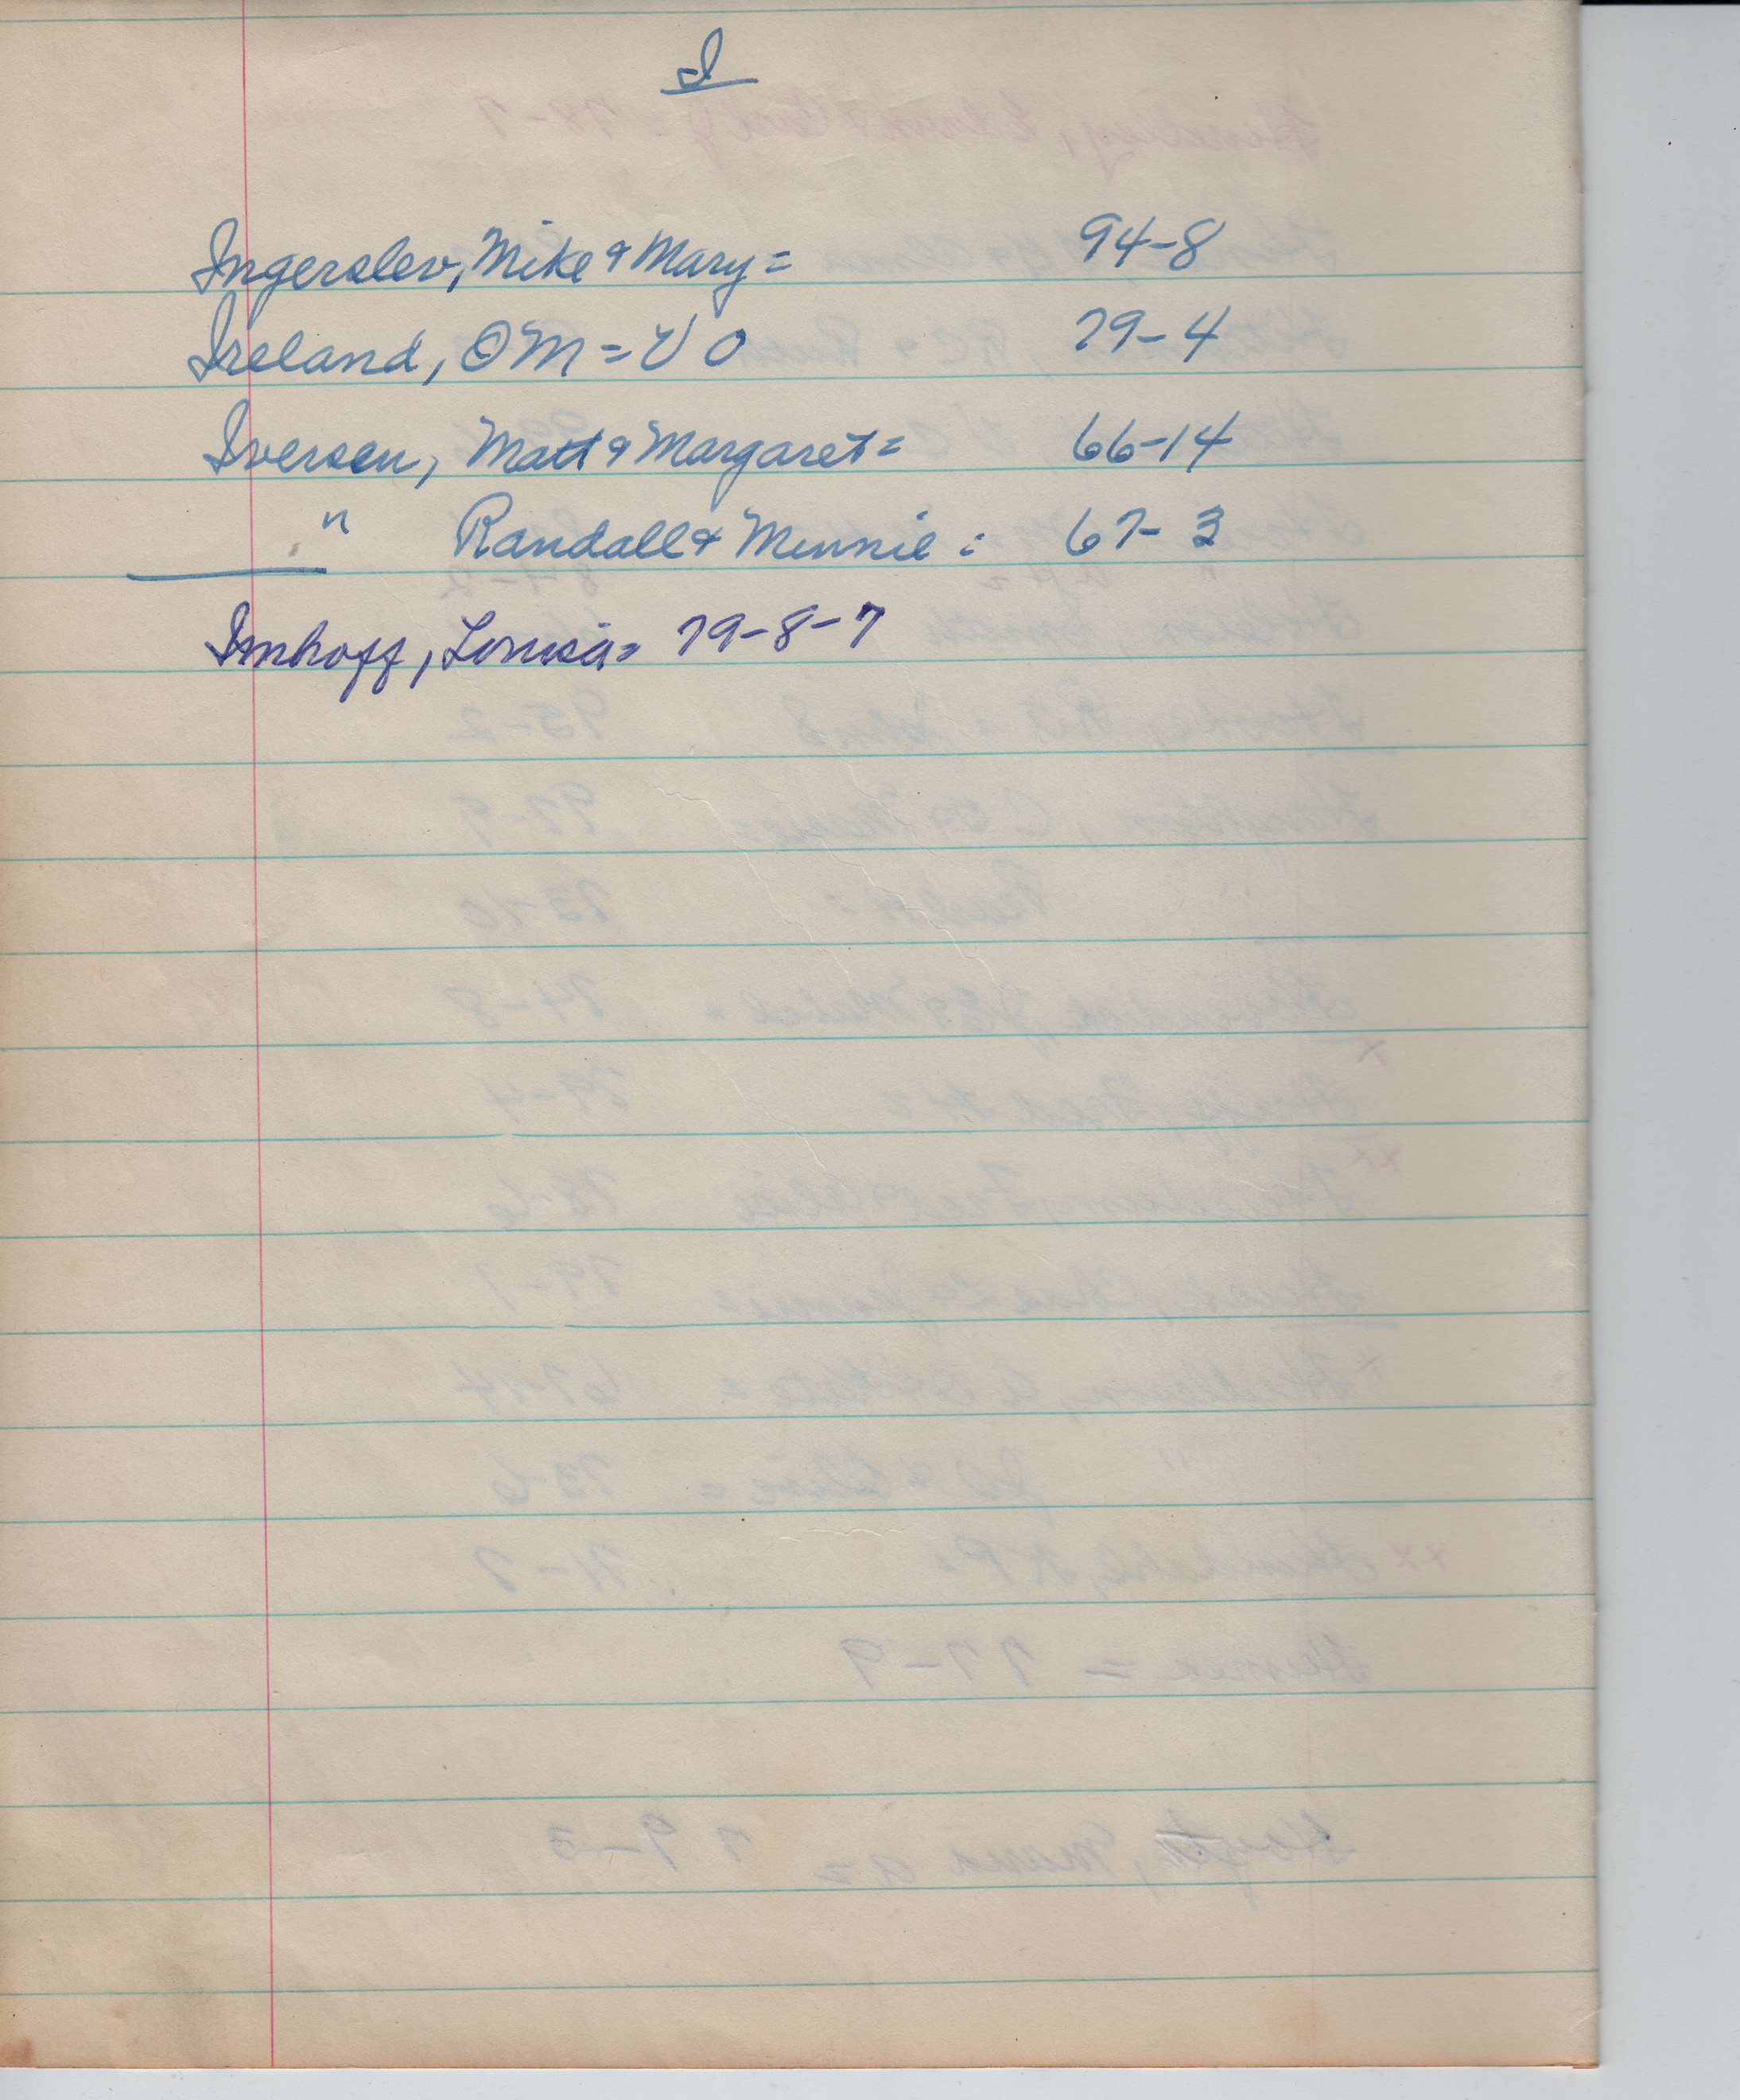 I
Ingerslev, Mike & Mary = 94-8
Ireland, OM = V O 79-4
Iversen, Matt & Margaret = 66-14
" Randall & Minnie = 67-3
Imhoff, Louisa = 79-8-7